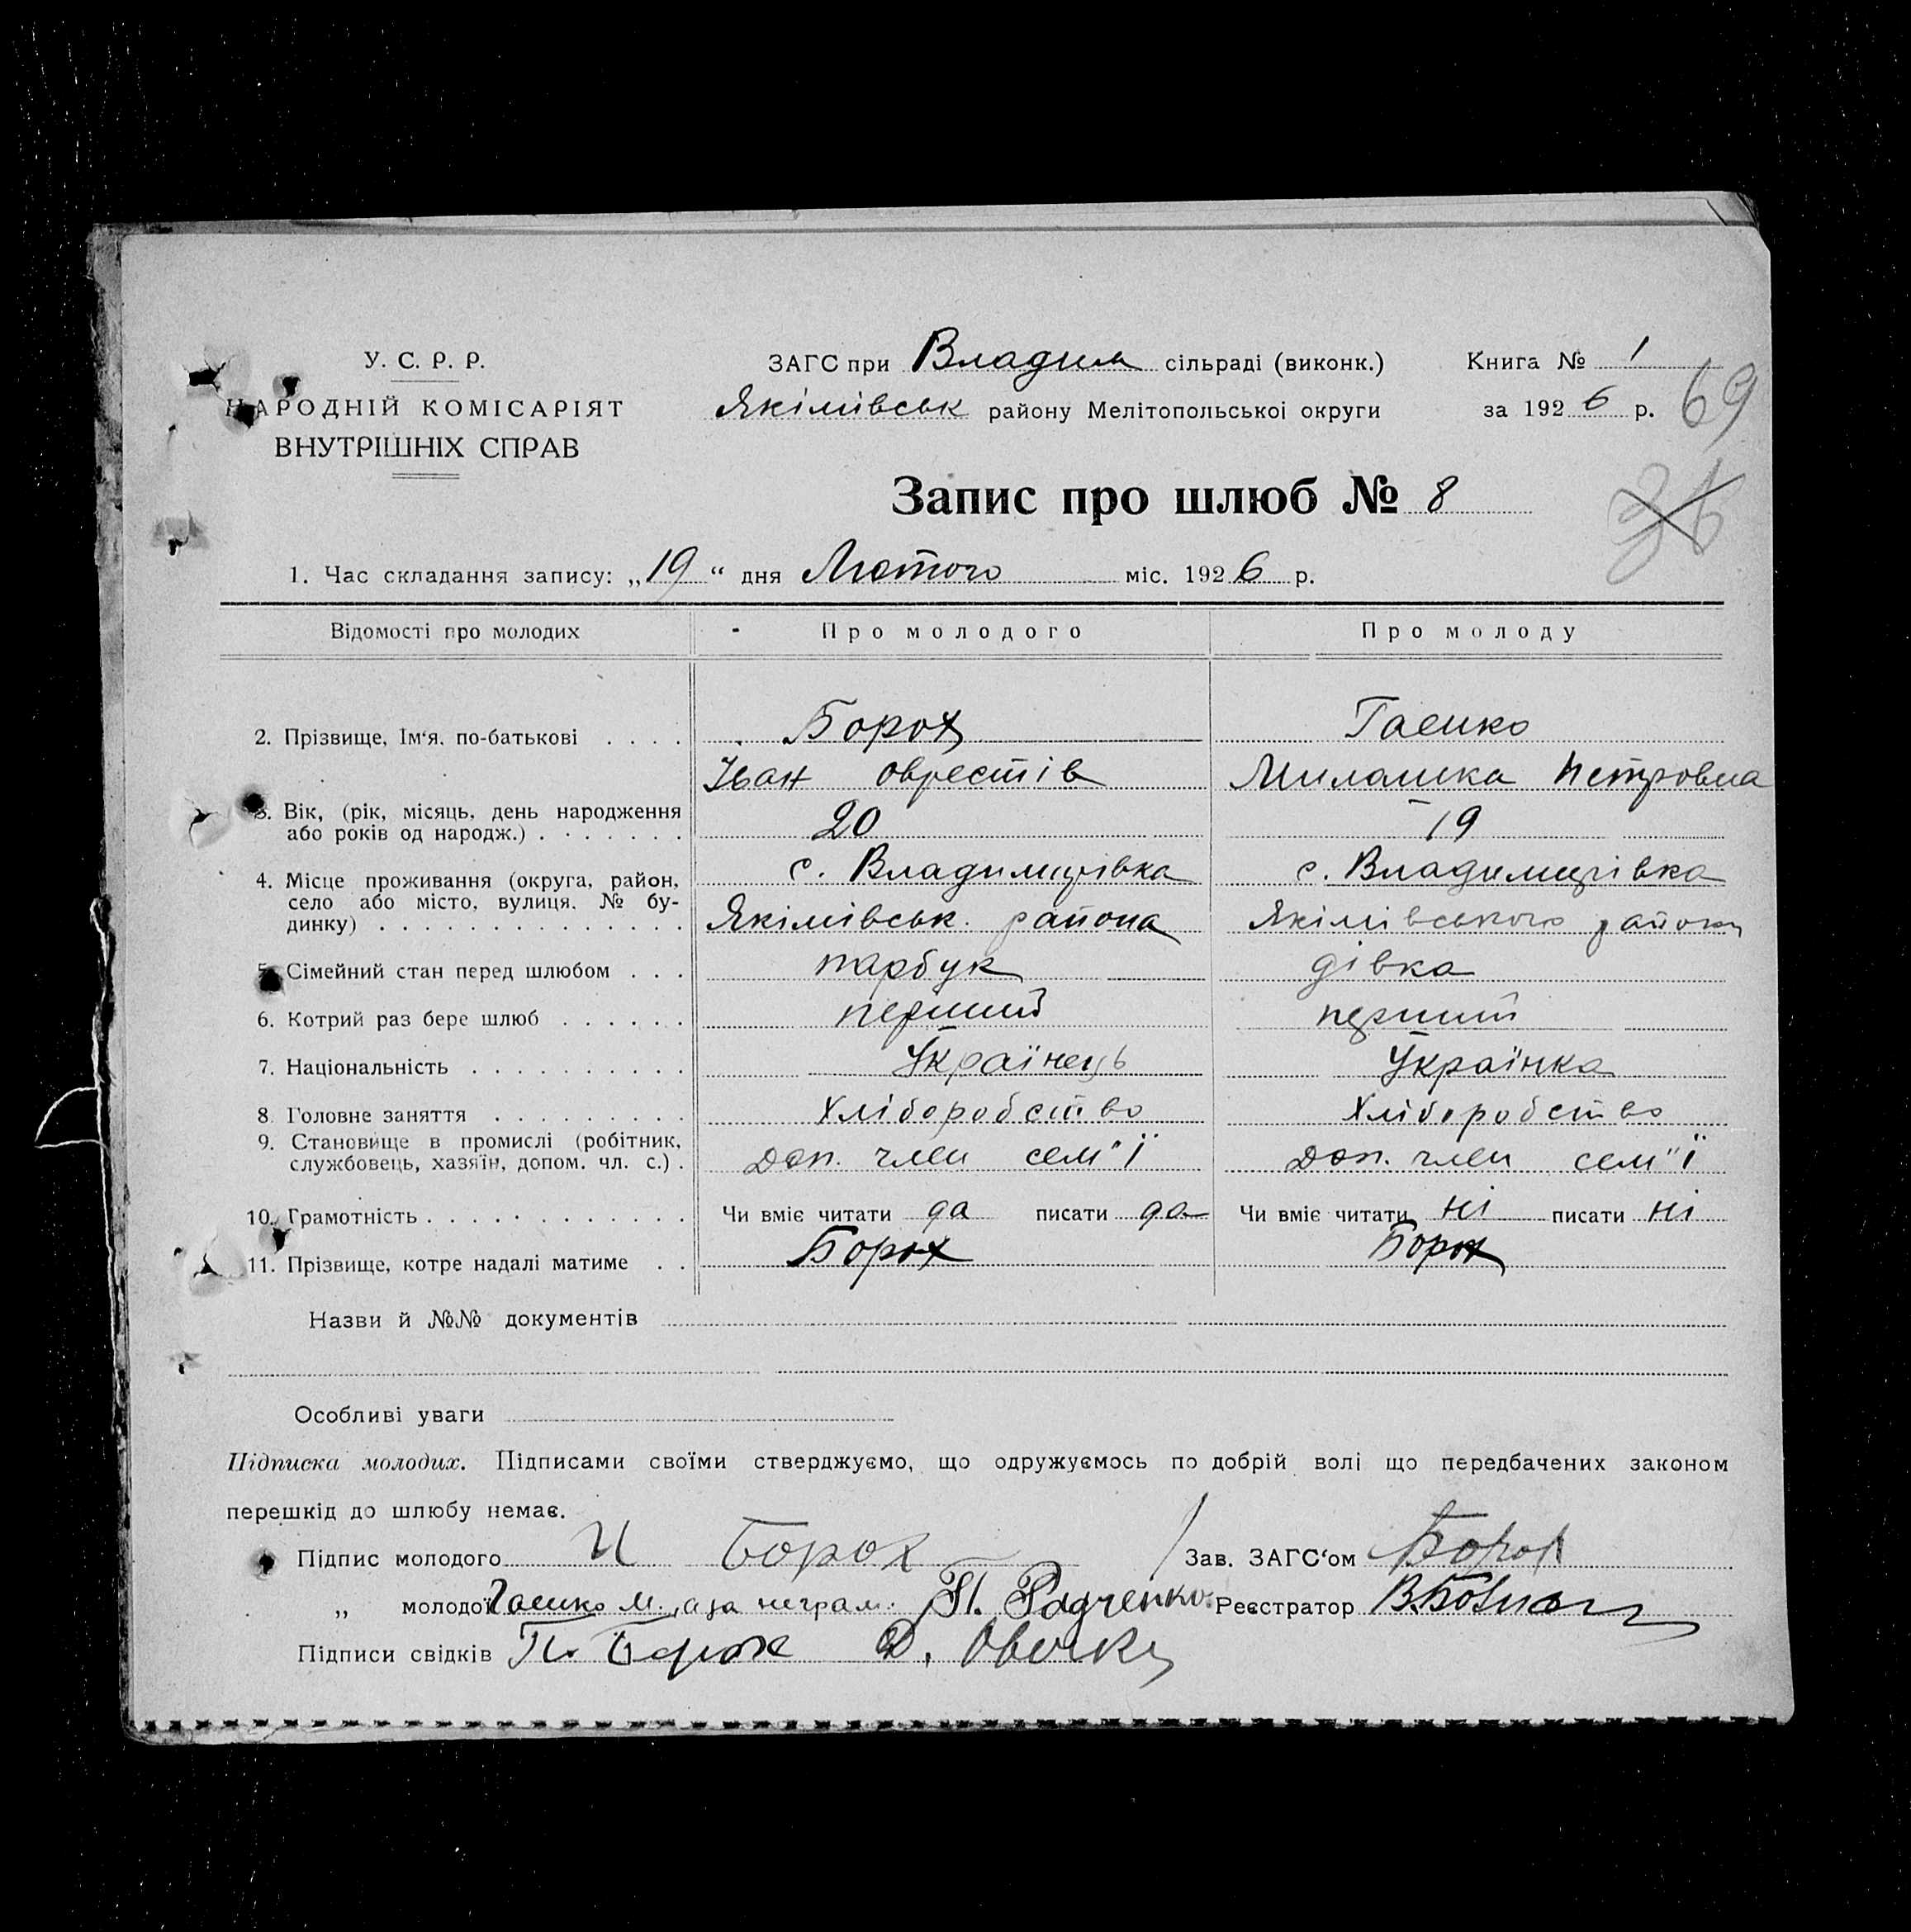 У. С. Р. Р.
НАРОДНІЙ КОМІСАРІЯТ
ВНУТРІШНІХ СПРАВ
ЗАГС при Владим сільраді (виконк.) Книга № 1
Якімівськ району Мелітопольськоі округи за 1926 р. 69
Запис про шлюб № 8
1. Час складання запису: „19“ дня Лютого міс. 1926 р.
Відомості про молодих Про молодого Про молоду
2. Прізвище, Ім‘я. по-батькові Борох Гаєшко
Іван Милашка Петровна
3. Вік, (рік, місяць, день народження або років од народж.) 20 19
4. Місце проживання (округа, район, село або місто, вулиця. № будинку) с. Владимирівка с. Владимирівка
Якімівськ. района Якімівського району
5. Сімейний стан перед шлюбом парбук дівка
6. Котрий раз бере шлюб перший перший
7. Національність Українець Українка
8 Головне заняття Хліборобство Хліборобство
9. Становище в промислі (робітник, службовець, хазяїн, допом. чл. с.) Доп. член сем"ї Доп. член сем"ї
10. Грамотність Чи вміє читати да писати да Чи вміє читати ні писати ні
11. Прізвище, котре надалі матиме Борох Борох
Назви й №№ документів
Особливі уваги
Підписка молодих. Підписами своїми стверджуємо, що одружуємось по добрій волі що передбачених законом
перешкід до шлюбу немає.
Підпис молодого И Борох Зав. ЗАГС‘ом Борох
„ молодої Гаєшко М., а за неграм. П. Радченко Реєстратор
Підписи свідків П. Д.